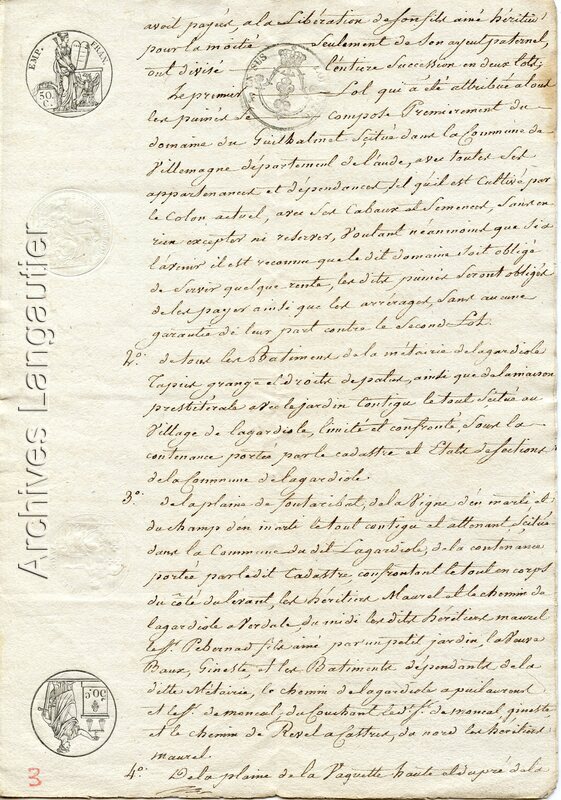 avoit payées, a la Libération de son fils ainé héritier
pour la moitié seulement de son ayeul paternel,
ont divisé l'entière Succession en deux lots;
Le premier Lot qui a été attribué a tous
les puinés se compose Premièrement du
domaine du Guilhalmet scitué dans la Commune de
Villemagne département de l'aude, avec toutes ses
appartenances et dépendances, tel qu'il est Cultivé par
le Colon actuel, avec ses Cabaux et Semences, Sans en
rien excepter ni reserver, Voulant neanmoins que si a
l'avenir il est reconnu que le dit domaine soit obligé
de Servir quelque rente, les dits puinés Seront obligés
de les payer ainsi que les arrérages, Sans aucune
garantie de leur part contre le Second Lot.
2°. de tous les Batiments de la métairie de lagardiole
Tapie, grange et droits de patus, ainsi que de la maison
presbitérale avec le jardin Contigu le tout Scitué au
Village de lagardiole, limité et confronté, Sous la
contenance portée par le cadastre et Etats de Sections
de la Commune de lagardiole.
3°. de la plaine de fontaribat, de la Vigne d'en marti, et
du champ d'en marti le tout contigu et attenant, Scitué
dans la Commune du dit Lagardiole, de la contenance
portée par le dit Cadastre, confrontant le tout en corps
du côté du levant, les héritiers Maurel et le chemin de
lagardiole a Verdale du midi les dits héritiers maurel
le Sr. Pebernad fils ainé par un petit jardin, la Veuve
Baux, Gineste, et les Batiments dépendants de la
ditte Métairie, le chemin de lagardiole a puilaurens
et le Sr. de moncal, du Couchant le dt. Sr. de moncal, gineste
et le chemin de Revel a Castres, du nord les héritiers
maurel.
4°. De la plaine de la Vaquette haute et du pré de la
EMP. FRAN.
50. C.
50. C.
Archives Langautier
3